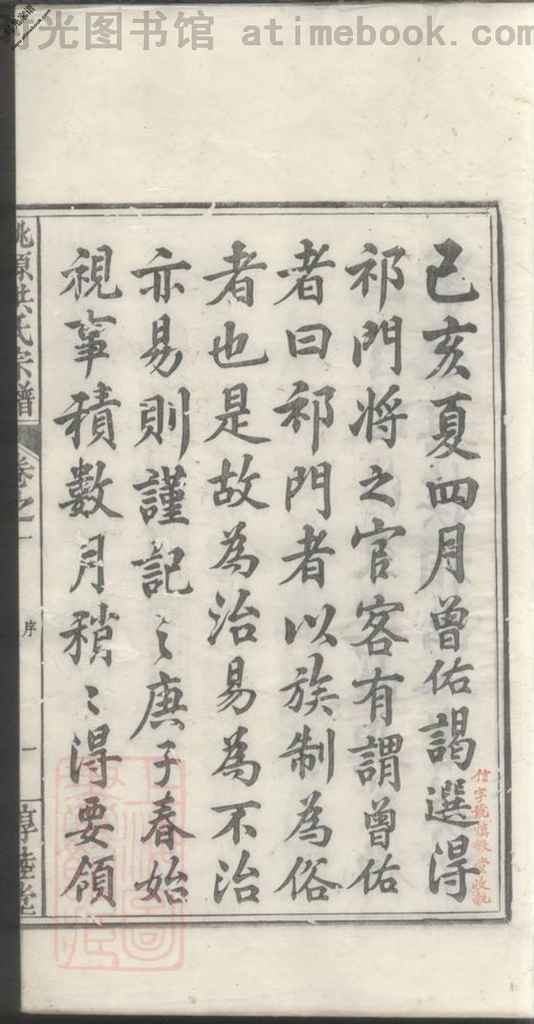 时光图书馆 atimebook.com
己亥夏四月曾佑謁選得
祁門將之官客有謂曾佑
者曰祁門者以族制為俗
者也是故為治易為不治
亦易則謹記〻庚子春始
視事積數月稍〻得要領
桃源洪氏宗譜
卷之一
序
一
敦睦堂